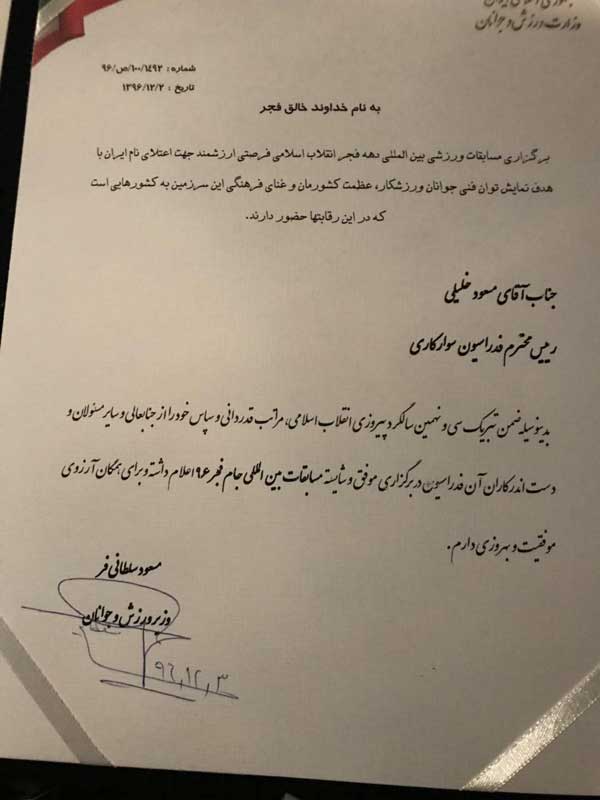 جمهوری اسلامی ایران
وزارت ورزش و جوانان
شماره : ۹۶/ص/۱۰۰/۱۴۹۲
تاریخ : ۱۳۹۶/۱۲/۲
به نام خداوند خالق فجر
برگزاری مسابقات ورزشی بین المللی دهه فجر انقلاب اسلامی فرصتی ارزشمند جهت اعتلای نام ایران با
هدف نمایش توان فنی جوانان ورزشکار، عظمت کشورمان و غنای فرهنگی این سرزمین به کشورهایی است
که در این رقابتها حضور دارند.
جناب آقای مسعود خلیلی
رییس محترم فدراسیون سوارکاری
بدینوسیله ضمن تبریک سی و نهمین سالگرد پیروزی انقلاب اسلامی، مراتب قدردانی و سپاس خود را از جنابعالی و سایر مسئولان و
دست اندرکاران آن فدراسیون در برگزاری موفق و شایسته مسابقات بین المللی جام فجر ۹۶ اعلام داشته و برای همگان آرزوی
موفقیت و بهروزی دارم.
مسعود سلطانی فر
وزیر ورزش و جوانان
۹۶,۱۲,۳